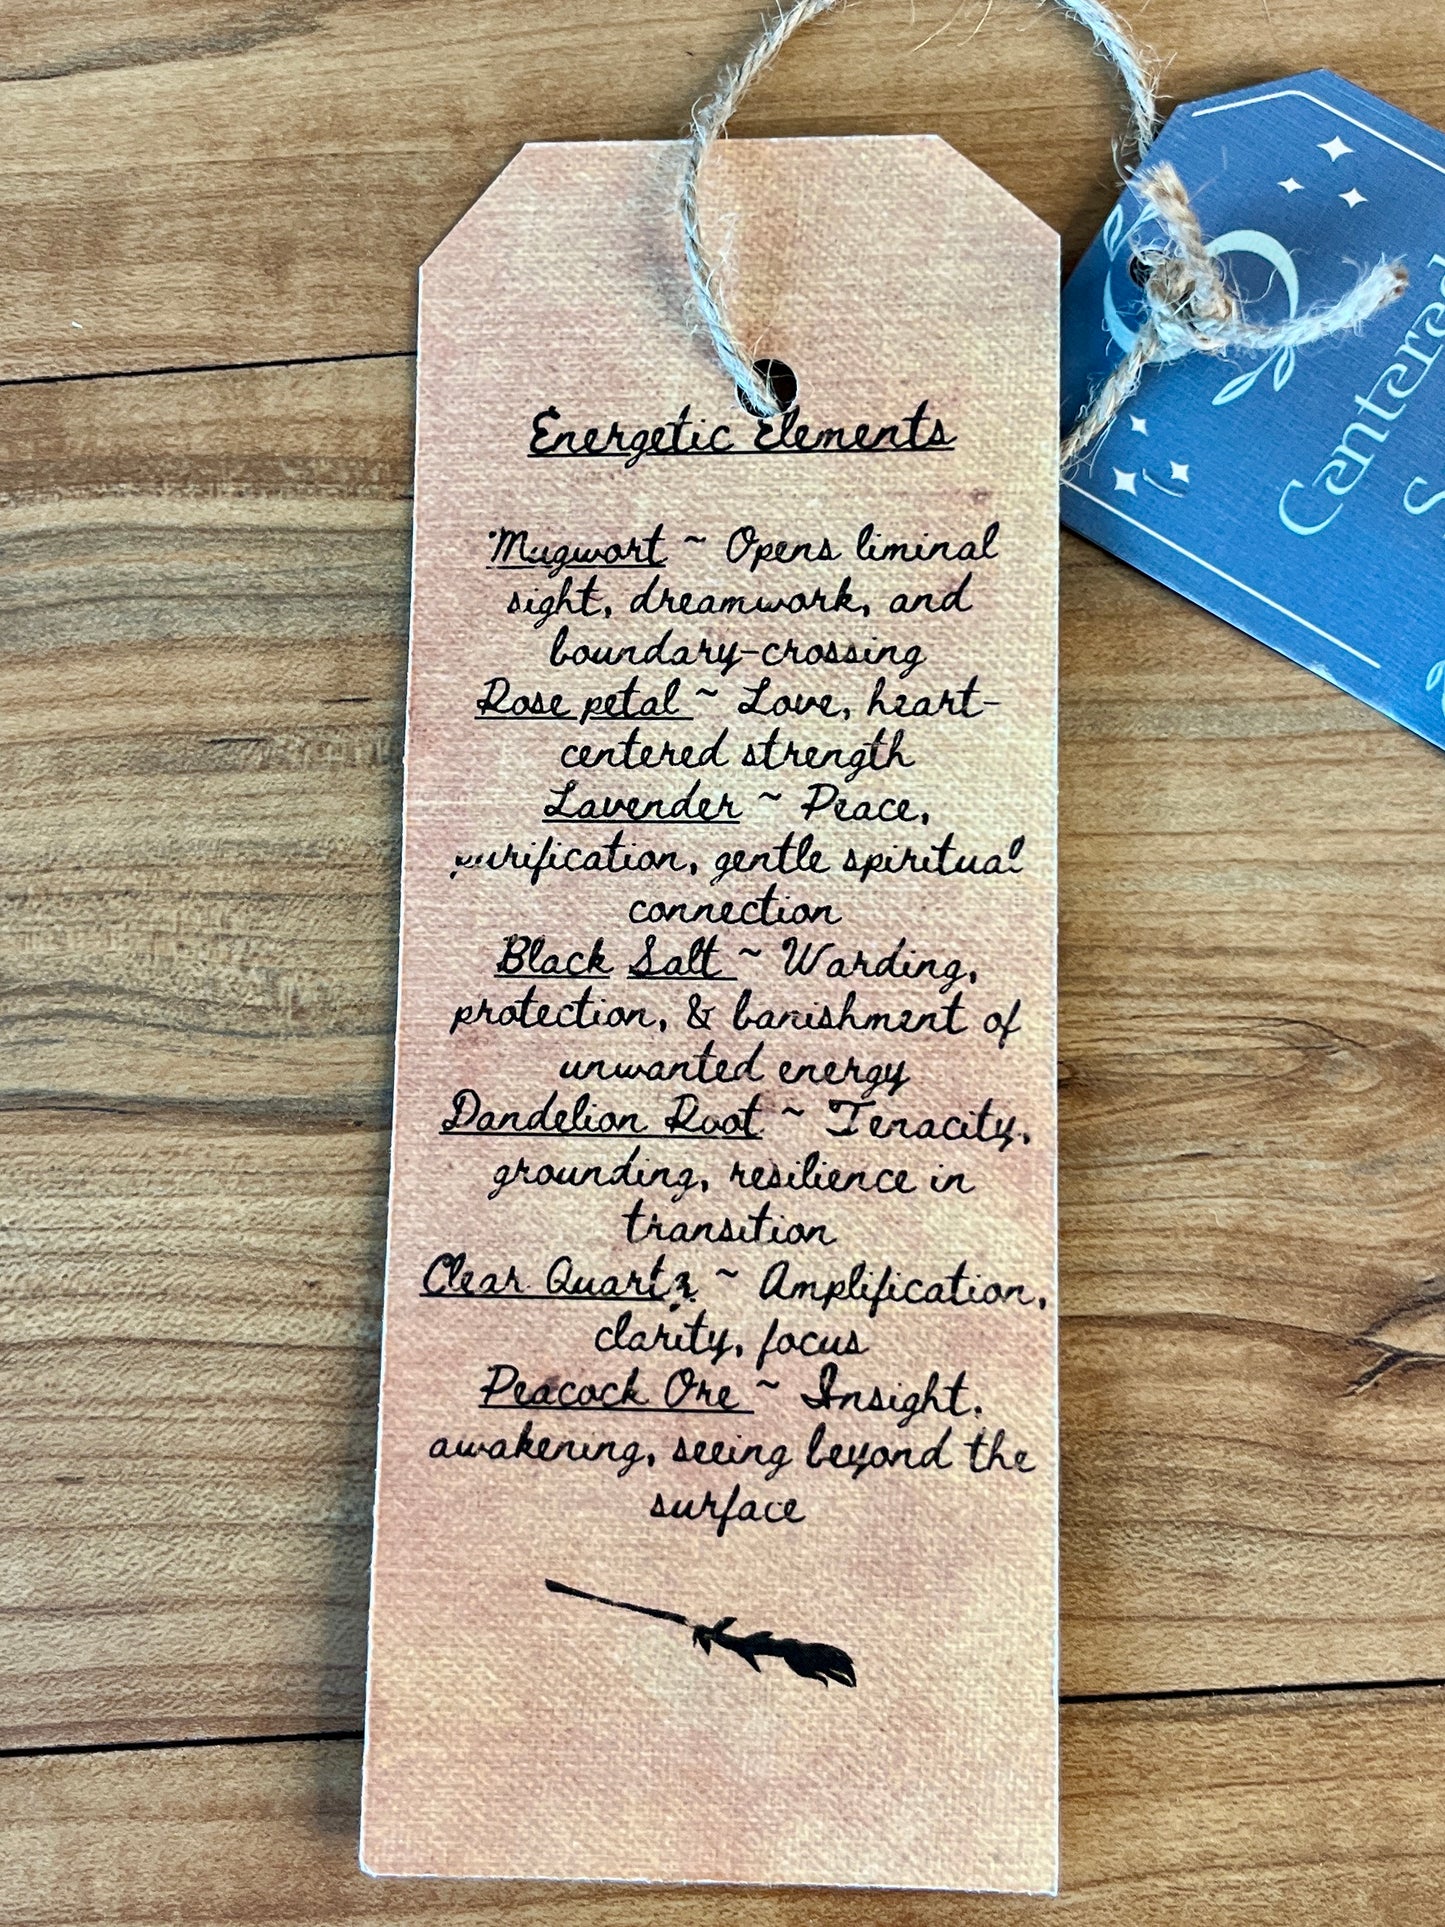 Energetic Elements
Mugwort ~ Opens liminal
sight, dreamwork, and
boundary-crossing
Rose petal ~ Love, heart-
centered strength
Lavender ~ Peace,
purification, gentle spiritual
connection
Black Salt ~ Warding,
protection, & banishment of
unwanted energy
Dandelion Root ~ Tenacity,
grounding, resilience in
transition
Clear Quartz ~ Amplification,
clarity, focus
Peacock Ore ~ Insight,
awakening, seeing beyond the
surface
Centered